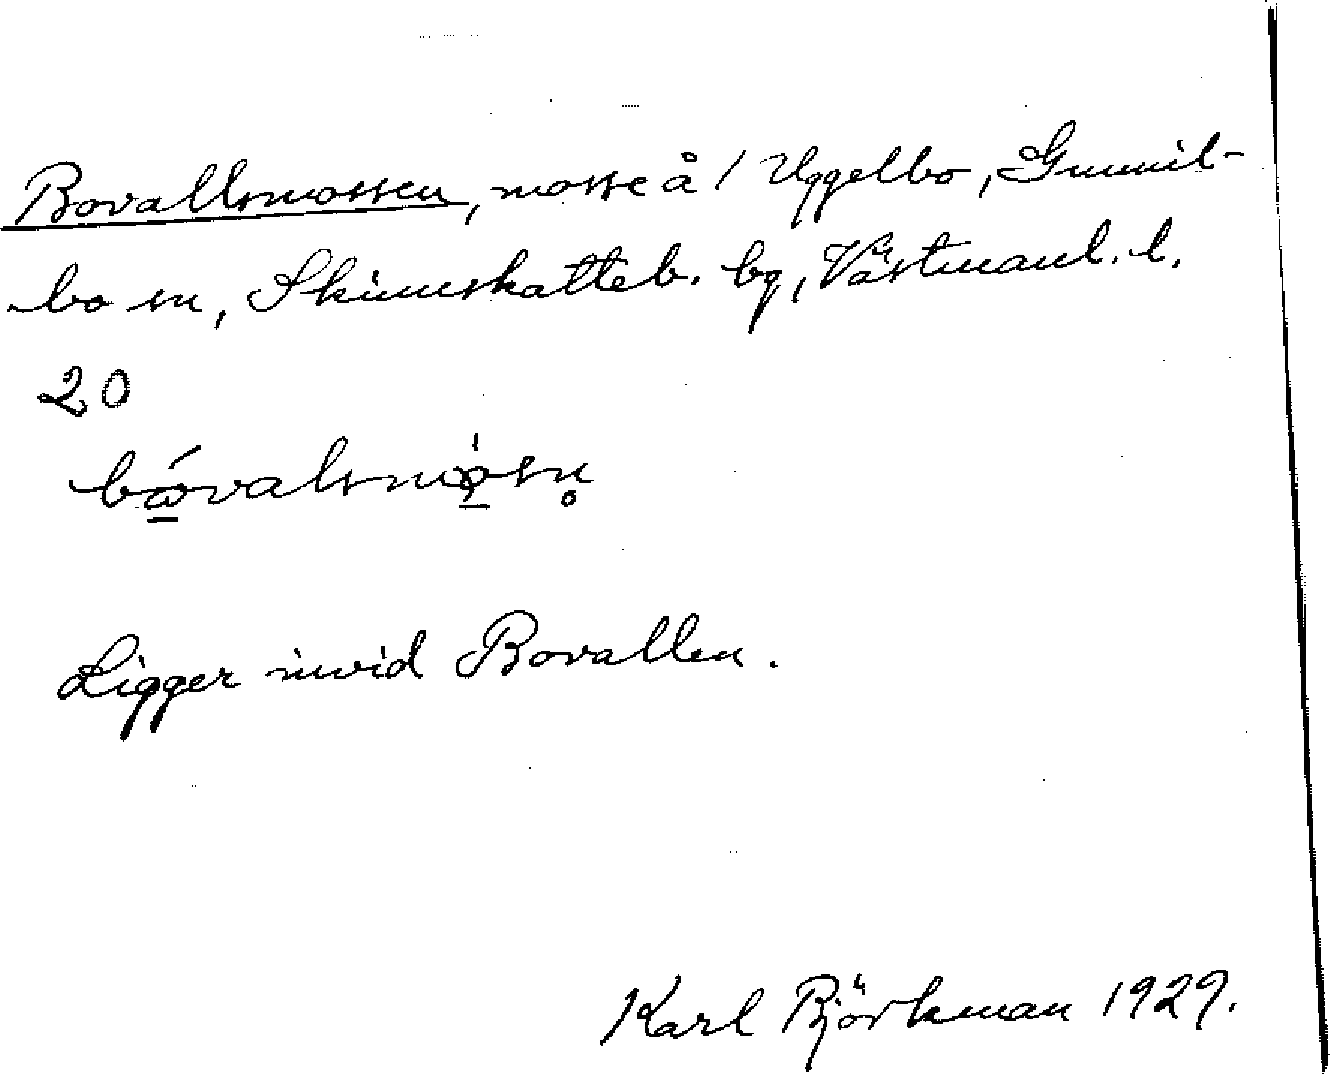 Bovallsmossen, mosse å 1 Uggelbo, Gunnil-
bo sn, Skinnskatteb. bg, Västmanl. l.
20
bóvalsmósn̥
Ligger invid Bovallen.
Karl Björkman 1929.